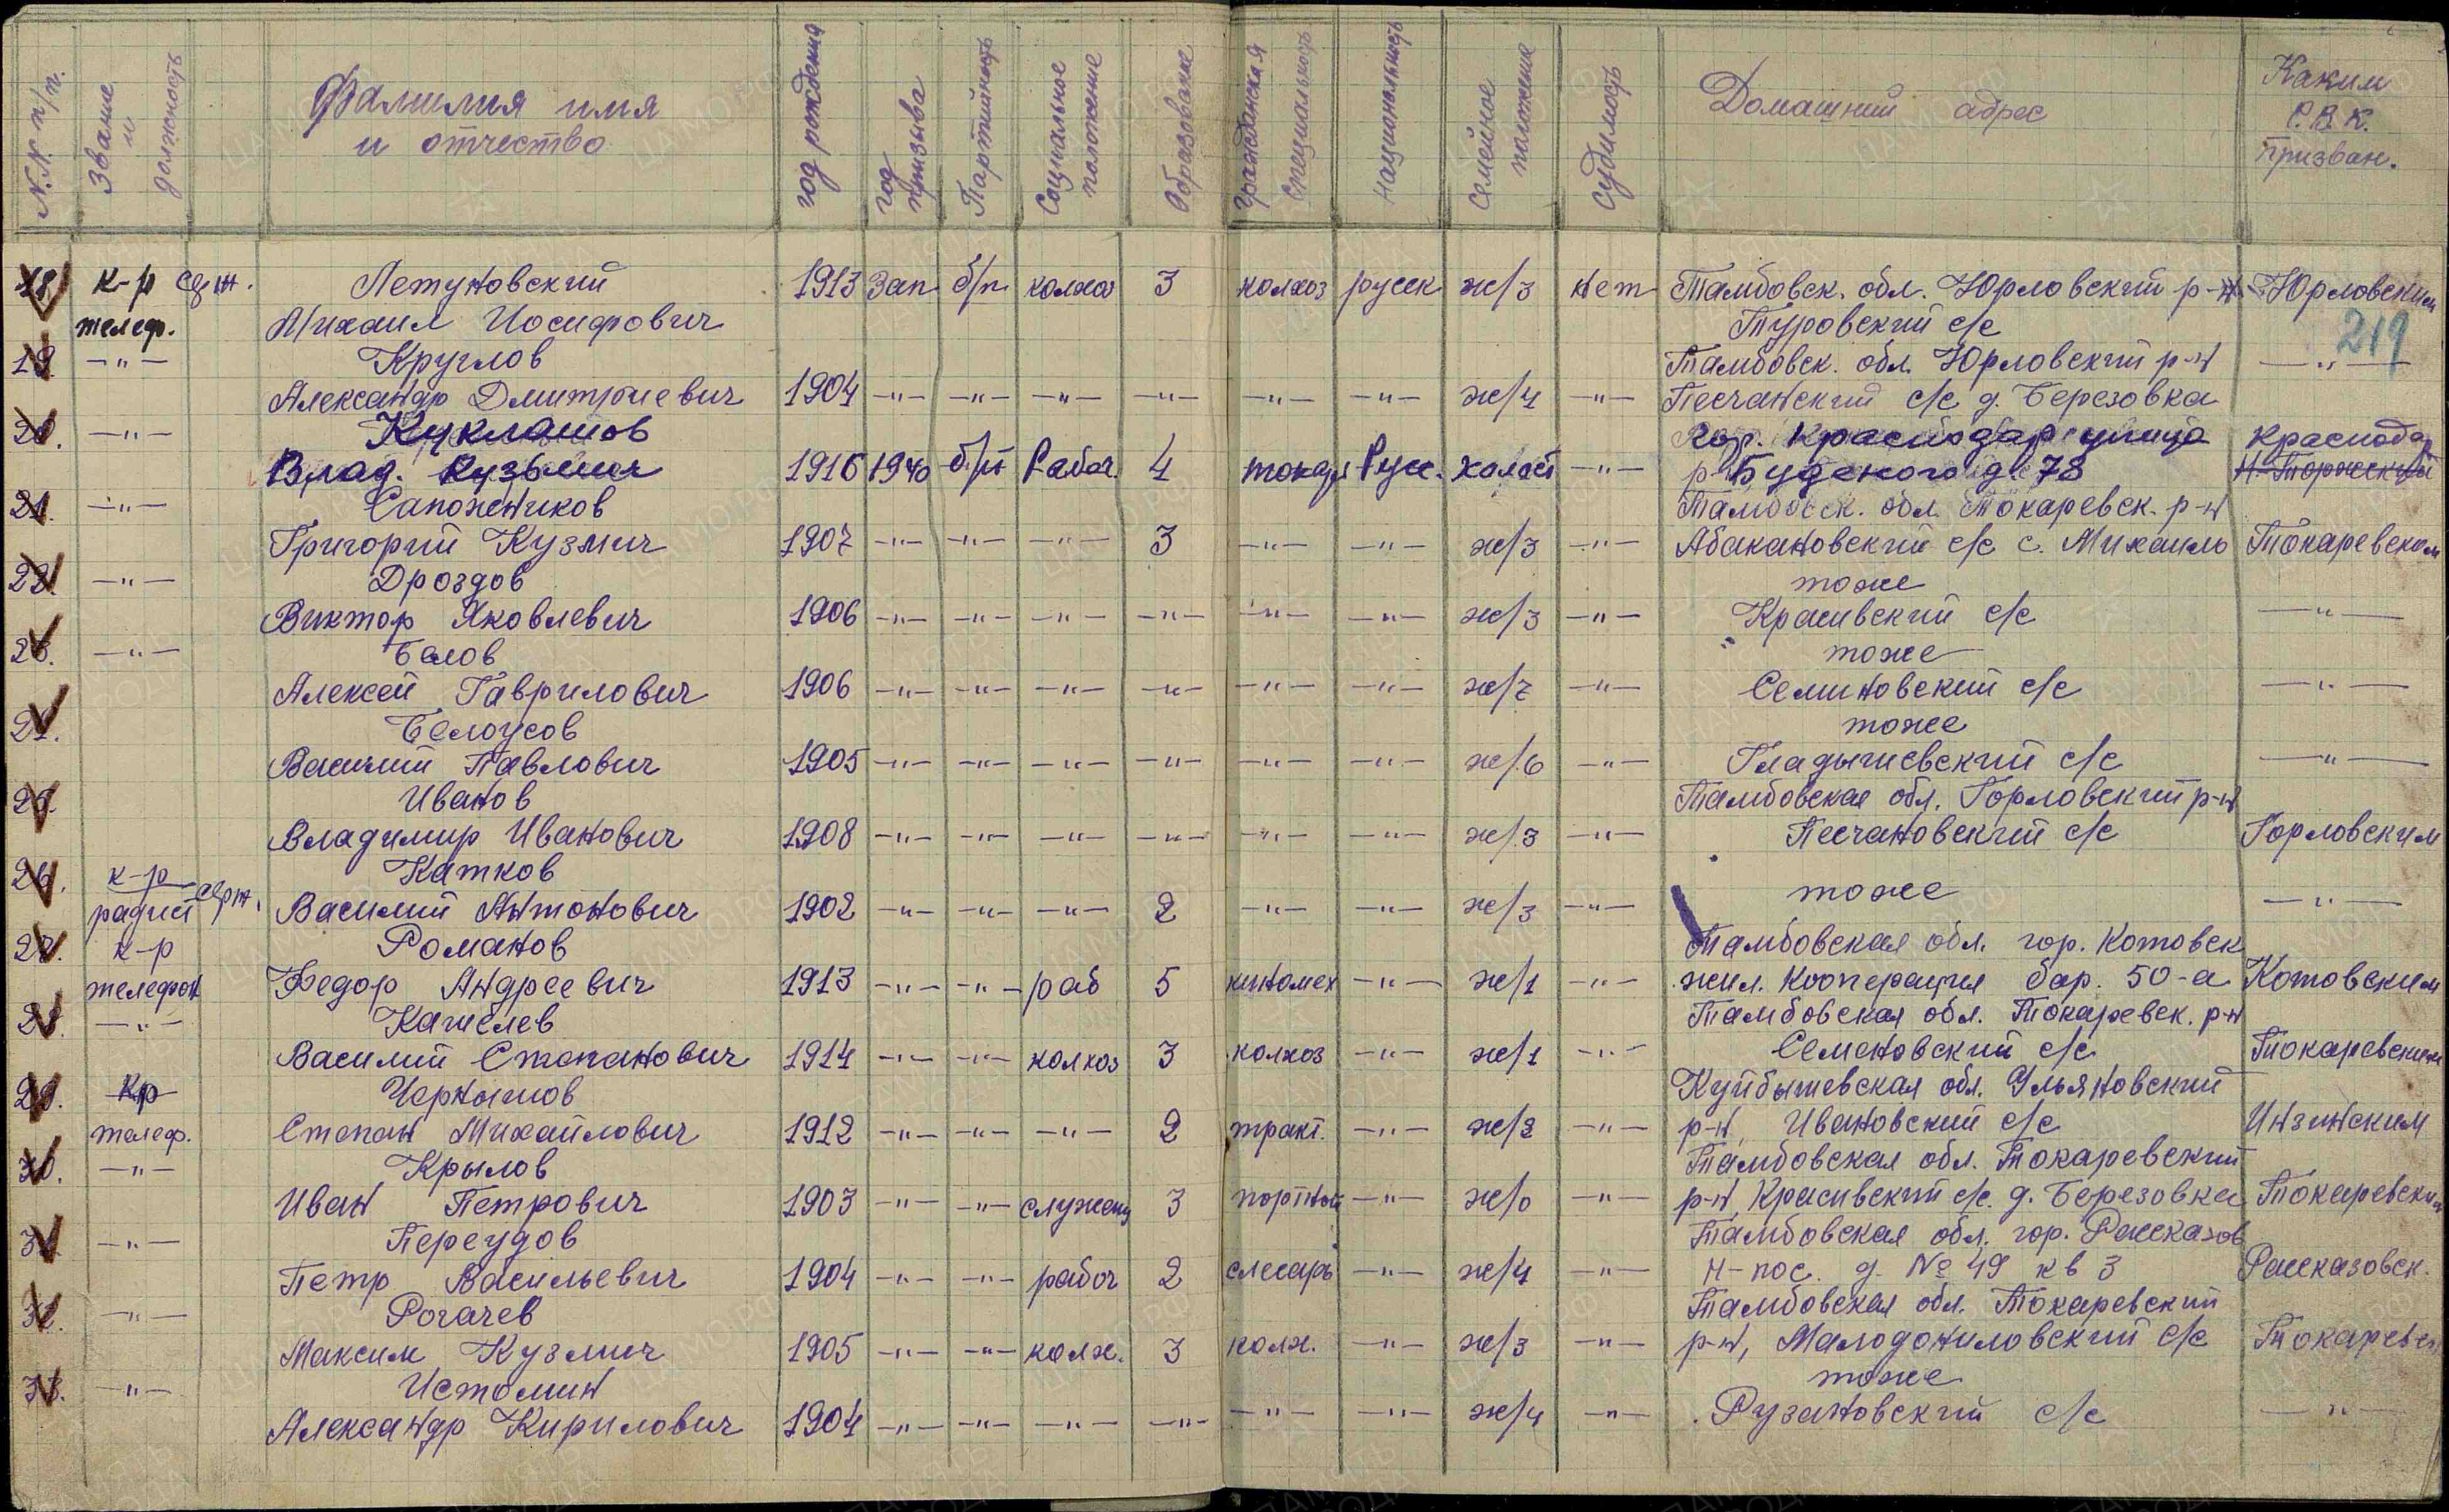 N.N. п/п. Звание и должность Фамилия имя и отчество год рождения год призыва Партийность Социальное положение Образование гражданская специальность Национальность Семейное положение Судимость Домашний адрес Каким Р.В.К. призван.
18. к-р серж. Летуновский 1913 Зап б/п колхоз 3 колхоз русск ж/3 нет Тамбовск. обл. Юрловский р-н Юрловским
телеф. Михаил Иосифович Туровский с/с 219
19. -"- Круглов Тамбовск. обл. Юрловский р-н -"-
Александр Дмитриевич 1904 -"- -"- -"- -"- -"- -"- ж/4 -"- Песчанский с/с д. Березовка
20. -"- Куклашов Гор. Краснодар улица Краснодар
Влад. Кузьмич 1916 1940 б/п Рабоч. 4 токарь Русс. холост -"- Буденого д. 78 Н-Торжский
21. -"- Сапожников Тамбовск. обл. Токаревск. р-н
Григорий Кузмич 1907 -"- -"- -"- 3 -"- -"- ж/3 -"- Абакановский с/с с. Михаиль Токаревском
22. -"- Дроздов тоже
Виктор Яковлевич 1906 -"- -"- -"- -"- -"- -"- ж/3 -"- Красивский с/с -"-
23. -"- Белов тоже
Алексей Гаврилович 1906 -"- -"- -"- -"- -"- -"- ж/7 -"- Семиновский с/с -"-
24. Белоусов тоже
Василий Павлович 1905 -"- -"- -"- -"- -"- -"- ж/6 -"- Гладышевский с/с -"-
25. Иванов Тамбовская обл. Горловский р-н
Владимир Иванович 1908 -"- -"- -"- -"- -"- -"- ж/3 -"- Песчановский с/с Горловским
26. к-р серж. Катков тоже
радист Василий Антонович 1902 -"- -"- -"- 2 -"- -"- ж/3 -"- -"-
27. к-р Романов Тамбовская обл. гор. Котовск
телефон Федор Андреевич 1913 -"- -"- раб 5 киномех -"- ж/1 -"- жил. кооперация бар. 50-а Котовским
28. -"- Кашелев Тамбовская обл. Токаревск. р-н
Василий Степанович 1914 -"- -"- колхоз 3 колхоз -"- ж/1 -"- Семеновский с/с Токаревским
29. кр Чернышов Куйбышевская обл. Ульяновский
телеф. Степан Михайлович 1912 -"- -"- -"- 2 тракт. -"- ж/2 -"- р-н, Ивановский с/с Инзинским
30. -"- Крылов Тамбовская обл. Токаревский
Иван Петрович 1903 -"- -"- служащ 3 портной -"- ж/0 -"- р-н, Красивский с/с. д. Березовка Токаревским
31. -"- Переудов Тамбовская обл. гор. Рассказов
Петр Васильевич 1904 -"- -"- рабоч 2 слесарь -"- ж/4 -"- Н-пос. д. № 49 кв 3 Рассказовск.
32. -"- Рогачев Тамбовская обл. Токаревский
Максим Кузмич 1905 -"- -"- колх. 3 колх. -"- ж/3 -"- р-н, Малодониловский с/с Токаревск
33. -"- Истомин тоже
Александр Кирилович 1904 -"- -"- -"- -"- -"- -"- ж/4 -"- Рузановский с/с -"-